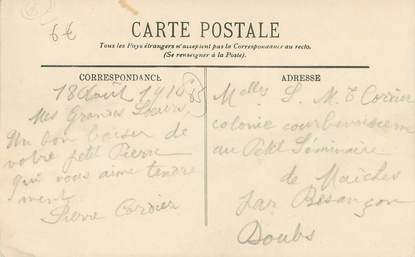 6€
CARTE POSTALE
Tous les Pays étrangers n'acceptent pas la Correspondance au recto.
(Se renseigner à la Poste).
CORRESPONDANCE
18 Août 1918
Mes Grandes Sœurs,
Un bon baiser de
votre petit Pierre
qui vous aime tendre
ment
Pierre Cordier
ADRESSE
Melles L. M. T Cordier
colonie
au Petit Séminaire
de Maîches
par Besançon
Doubs